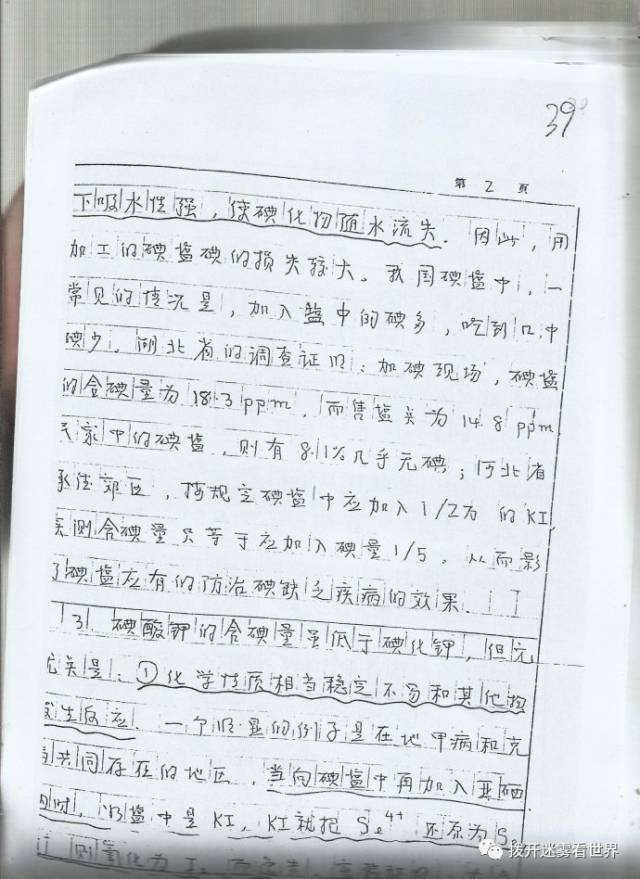 39
第 2 頁
下吸水性强，使碘化物随水流失．因此，用
加工的碘盐碘的损失较大。我国碘盐中，一
常见的情况是，加入盐中的碘多，吃到口中
碘少。湖北省的调查证明：加碘现场，碘盐
的含碘量为 18.3 ppm，而售盐点为 14.8 ppm
家中的碘盐，则有 8.1%几乎无碘；河北省
承德郊区，按规定碘盐中应加入1/2万的KI,
实测含碘量只等于应加入碘量1/5，从而影
了碘盐应有的防治碘缺乏疾病的效果．
(3)．碘酸钾的含碘量虽低于碘化钾，但
优点是：①化学性质相当稳定不易和其他物
发生反应．一个明显的例子是在地甲病和克
共同存在的地区，当向碘盐中再加入亚硒
时，如盐中是KI, KI就把 Se4+ 还原为S
则氧化为 I
拨开迷雾看世界